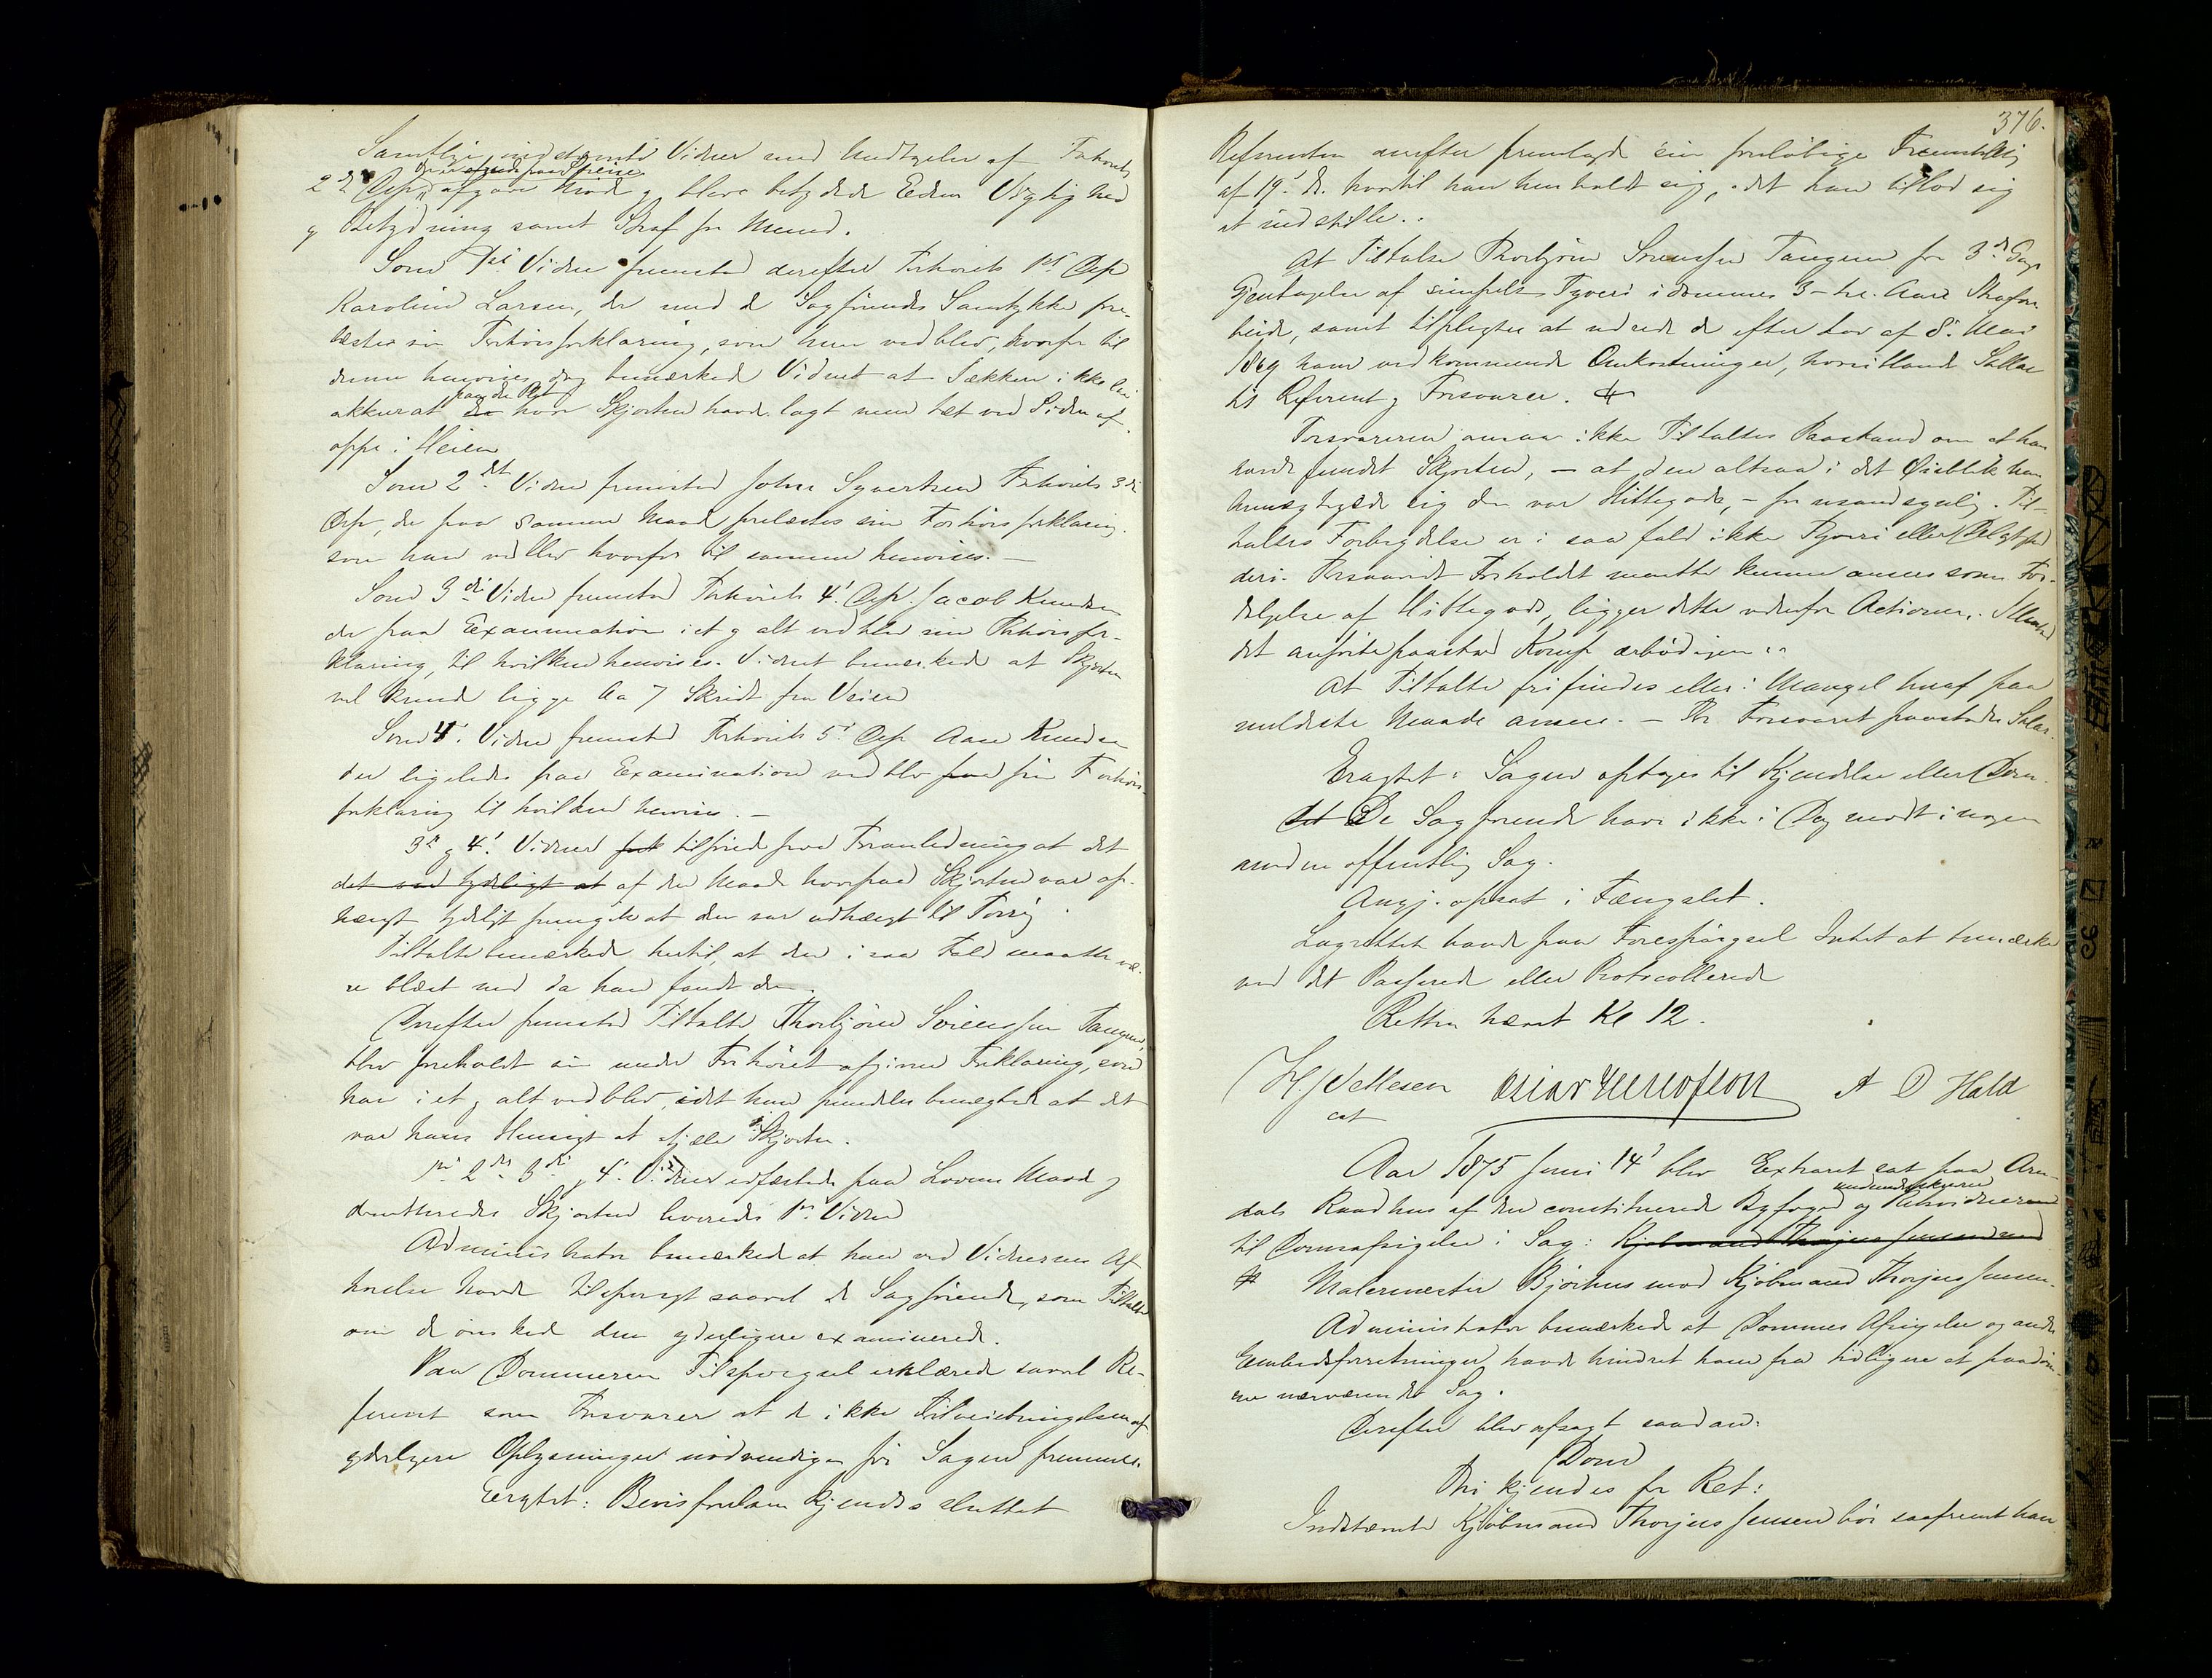 Samtlige indstævnte Vidner med Undtagelse af Forhørets
der er afreist paa Reise
2det Dep. afgav Møde og blev betydede Edens Vigtighed
og Betydning samt Straf for Meened.
Som 1ste Vidne fremstod derefter Forhørets 1ste Dep
Karoline Larsen, der med de Sagførendes Samtykke fore-
læstes sin Forhørsforklaring, som hun vedblev, hvorfor til
denne henvises, dog bemærkede Vidnet at Sækken ikke laa
paa det Sted
akkurat der hvor Skjorten havde lagt men tæt ved Siden af
oppe i Heien
Som 2det Vidne fremstod Johan Syvertsen Forhørets 3die
Dep, der paa samme Maade forelæstes sin Forhørsforklaring,
som han vedblev hvorfor til samme henvises. —
Som 3die Vidne fremstod Forhørets 4' Dep. Jacob Knudsen
der paa Examination i et og alt vedblev sin Forhørsfor-
klaring, til hvilken henvises. Vidnet bemærkede at Skjorten
vel kunde ligge 6 a 7 Skridt fra Veien
Som 4' Vidne fremstod Forhørets 5' Dep Aase Knudsen
der ligeledes paa Examination vedblev sin Forhørs-
forklaring til hvilken henvises. —
3de og 4' Vidner tilføiede paa Foranledning at det
det var tydeligt at af den Maade hvorpaa Skjorten var op-
hængt tydeligt fremgik at den var udhængt til Tørring.
Tiltalte bemærkede hertil, at den i saa Fald maatte væ-
re blæst ned da han fandt den.
Derefter fremstod Tiltalte Thorbjørn Sørensen Tangen,
blev foreholdt sin under Forhøret afgivne Forklaring, som
han i et og alt vedblev, idet han fremdeles benægtede at det
var hans Hensigt at stjæle Skjorten.
1ste 2det 3die og 4' Vidner edfæstede paa Lovens Maade og
dimitteredes Skjorten leveredes 1ste Vidne
Administrator bemærkede at han ved Vidnernes Af-
hørelse havde tilspurgt saavel de Sagførende, som Tiltalte
om de ønskede dem yderligere examinerede.
Paa Dommerens Tilspørgsel erklærede saavel Re-
ferent som Forsvarer at de ikke Tilveiebringelsen af
yderligere Oplysninger nødvendige før Sagen fremmes.
Eragtet: Bevisførelsen kjendes sluttet
376.
Referenten derefter fremlagde sin foreløbige Fremstilling
af 19' ds. hvortil han henholdt sig, idet han tillod sig
at indstille..
At Tiltalte Thorbjørn Sørensen Tangen for 3de Gang
Gjentagelse af simpelt Tyveri idømmes 3 - tre Aars Strafar-
beide, samt tilpligtes at udrede de efter Lov af 8' Mai
1869 ham vedkommende Omkostninger, hvoriblandt Sallær
til Referent og Forsvarer.
Forsvareren ansaa ikke Tiltaltes Paastand om at han
havde fundet Skjorten, — at den altsaa i det Øieblik han
bemægtigede sig den var Hittegods, — for usandsynlig. Til-
taltes Forbrydelse er i saa fald ikke Tyveri eller Delagtig
deri. Forsaavidt Forholdet maatte kunne ansees som For-
dølgelse af Hittegods, ligger dette udenfor Actionen.
det anførte paastod Komp ærbødigen
At Tiltalte frifindes eller i Mangel heraf paa
mildeste Maade ansees. — For Forsvaret paastodes Salær.
Eragtet: Sagen optages til Kjendelse eller Dom.
De Sagførende have ikke i Dag mødt i nogen
anden offentlig Sag.
Angj. opsat i Fængslet.
Lagrettet havde paa Forespørgsel Intet at bemærke
ved det Passerede eller Protocollerede
Retten hævet Kl 12.
H J Vellesen A D Hald
cst
Aar 1875 Juni 14' blev Extraret sat paa Aren-
medundertegnede
dals Raadhus af den constituerede Byfoged og Retsvidnerne
til Domsafsigelse i Sag: Kjøbmand Thorjus Jensen mod
Malermester Bjørhus mod Kjøbmand Thorjus Jensen.
Administrator bemærkede at Dommes Afsigelse og andre
Embedsforretninger havde hindret ham fra tidligere at paadøm-
me nærværende Sag.
Derefter blev afsagt saadan:
Dom
Thi kjendes for Ret:
Indstævnte Kjøbmand Thorjus Jensen bør saafremt han